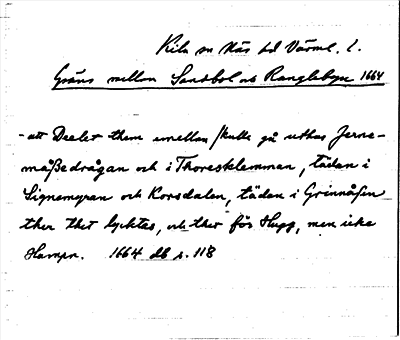 Kila sn Näs hd Värml. l.
Gräns mellan Sandbol och Ranglebyn 1664
- att Deelet them emellan skulle gå uthas Jerne-
måßedrågan och i Thoresklemman, täden i
Signemyran och Korsdalen, täden i Grinnåsen
ther thet lycktes, och ther förs Hugg, men icke
Hampn. 1664 db s. 118